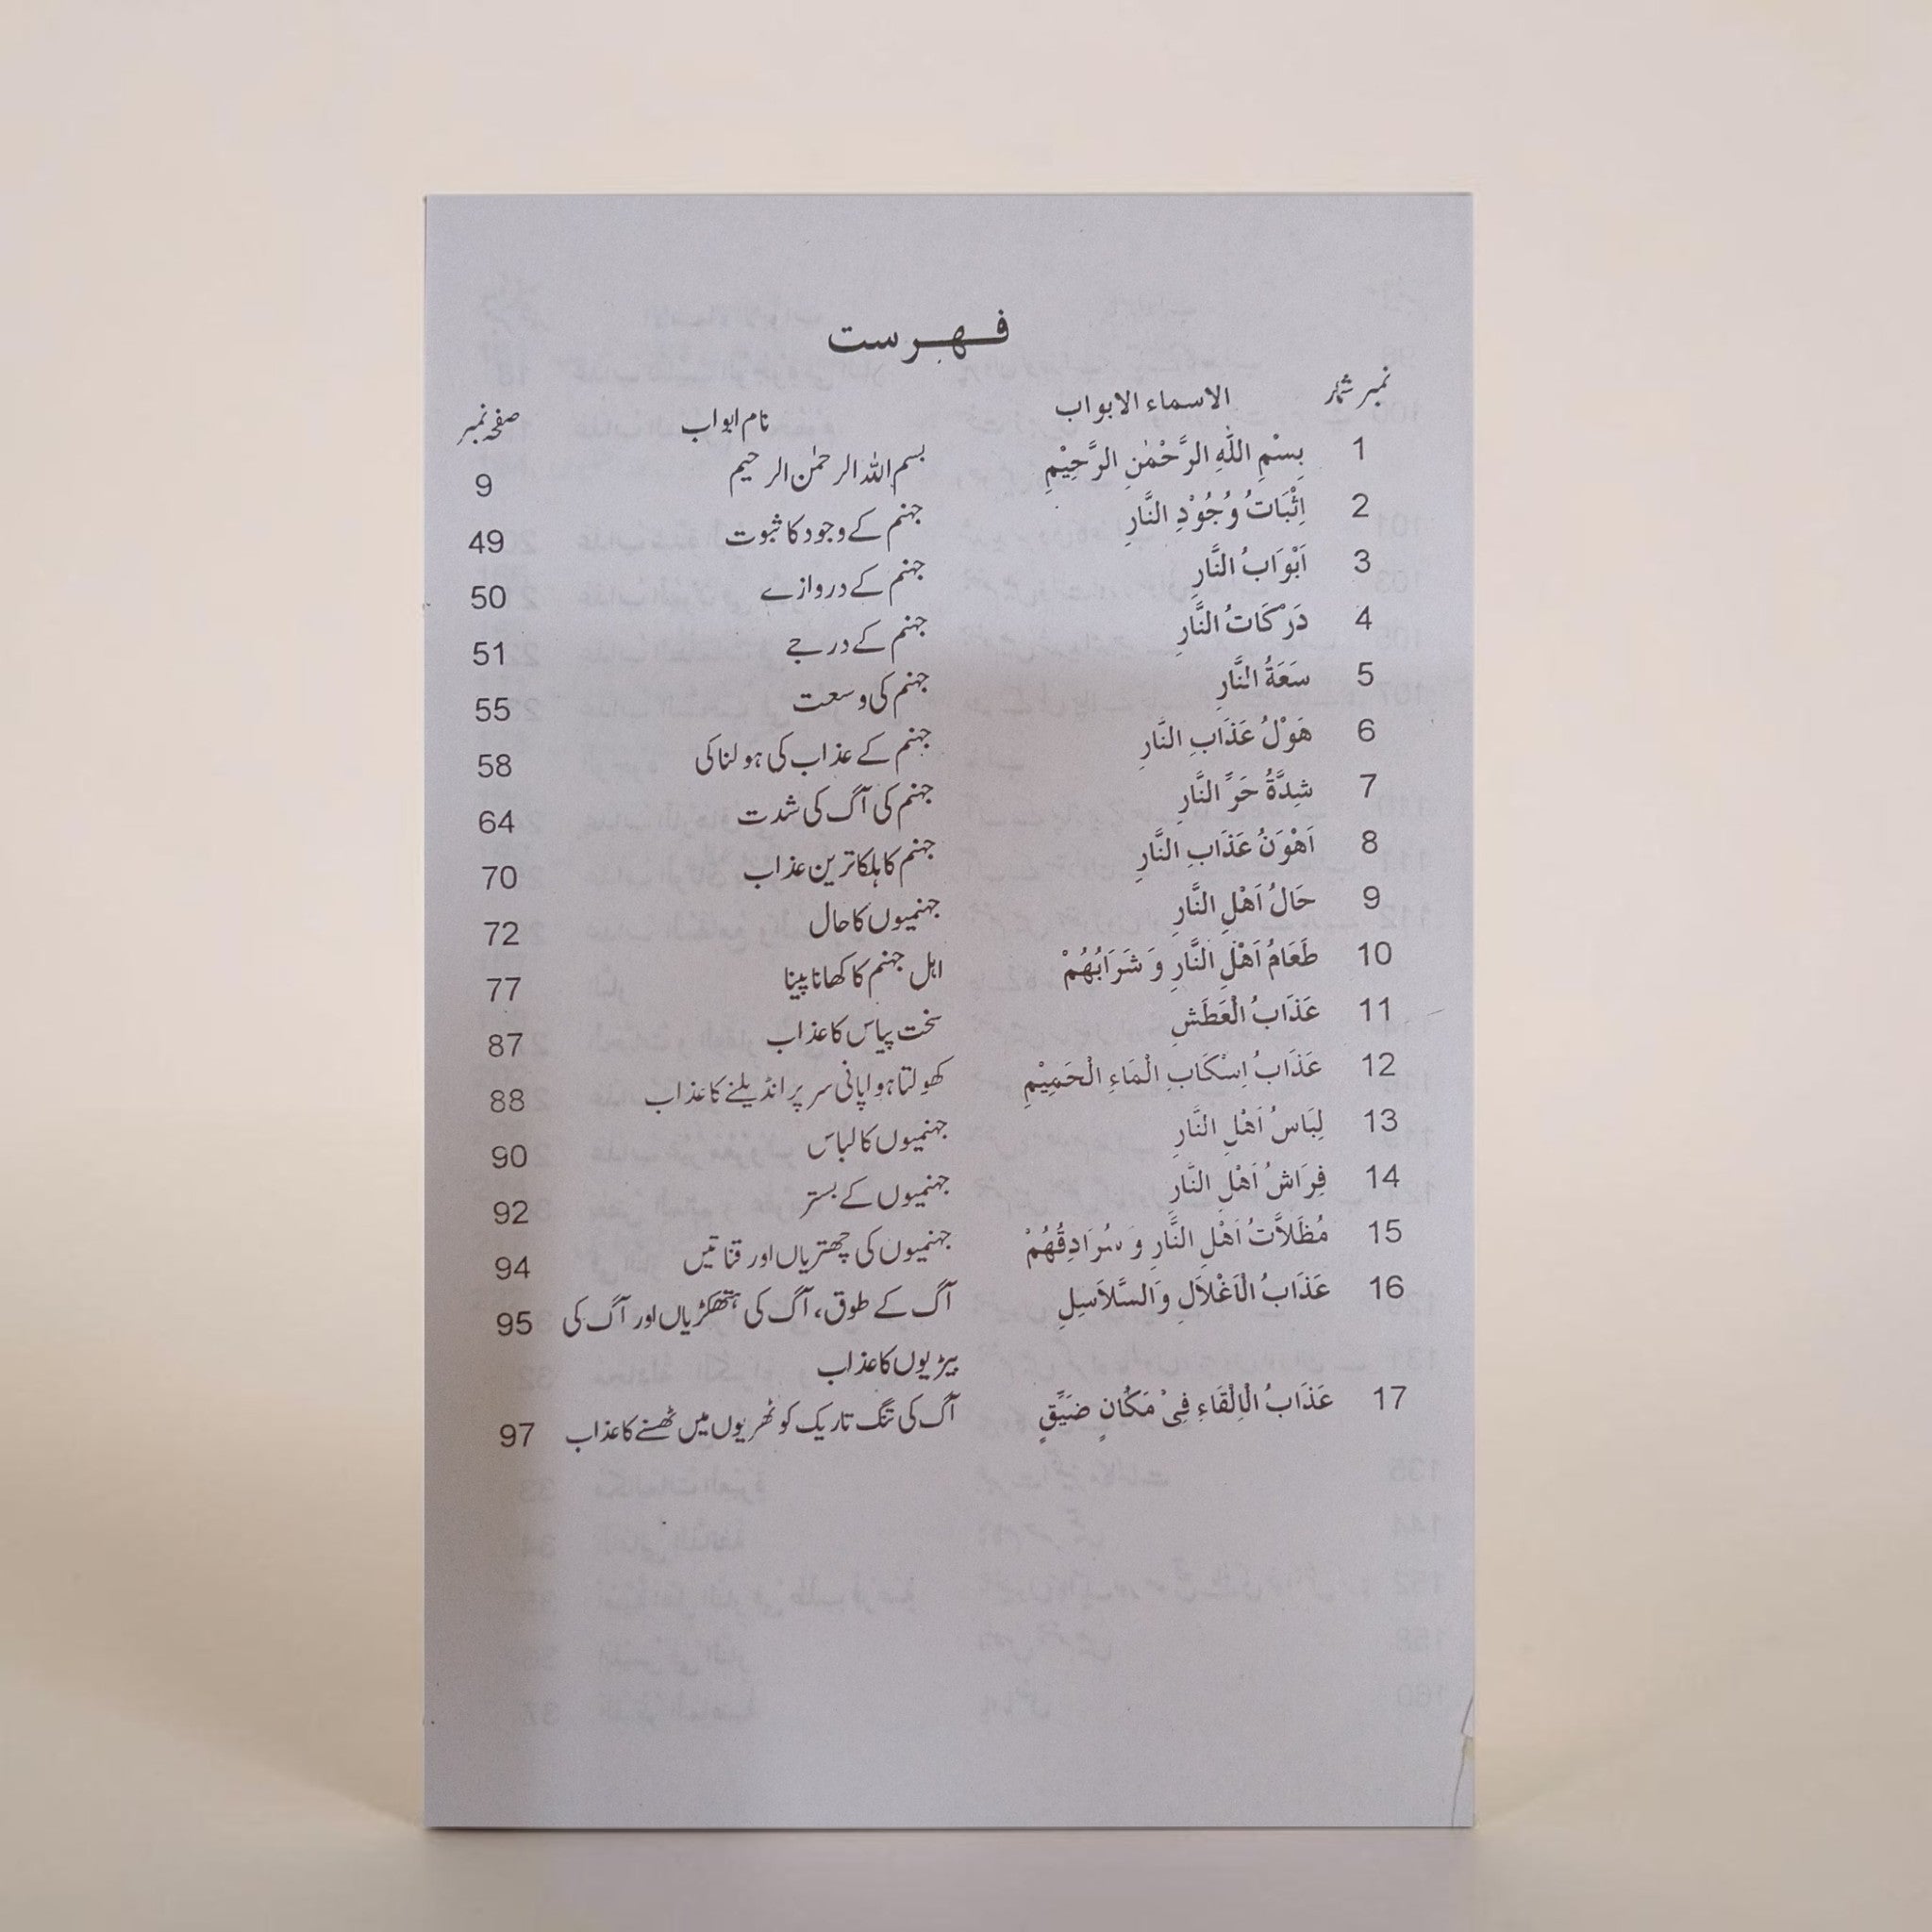 فہرست
نمبر شمار الاسماء الابواب نام ابواب صفحہ نمبر
1 بِسْمِ اللّٰهِ الرَّحْمٰنِ الرَّحِيْمِ بسم اللہ الرحمٰن الرحیم 9
2 اِثْبَاتُ وُجُوْدِ النَّارِ جہنم کے وجود کا ثبوت 49
3 اَبْوَابُ النَّارِ جہنم کے دروازے 50
4 دَرَكَاتُ النَّارِ جہنم کے درجے 51
5 سَعَةُ النَّارِ جہنم کی وسعت 55
6 هَوْلُ عَذَابِ النَّارِ جہنم کے عذاب کی ہولناکی 58
7 شِدَّةُ حَرِّ النَّارِ جہنم کی آگ کی شدت 64
8 اَهْوَنُ عَذَابِ النَّارِ جہنم کا ہلکا ترین عذاب 70
9 حَالُ اَهْلِ النَّارِ جہنمیوں کا حال 72
10 طَعَامُ اَهْلِ النَّارِ وَ شَرَابُهُمْ اہل جہنم کا کھانا پینا 77
11 عَذَابُ الْعَطَشِ سخت پیاس کا عذاب 87
12 عَذَابُ اِسْكَابِ الْمَاءِ الْحَمِيْمِ کھولتا ہوا پانی سر پر انڈیلنے کا عذاب 88
13 لِبَاسُ اَهْلِ النَّارِ جہنمیوں کا لباس 90
14 فِرَاشُ اَهْلِ النَّارِ جہنمیوں کے بستر 92
15 مُظَلَّاتُ اَهْلِ النَّارِ وَ سُرَادِقُهُمْ جہنمیوں کی چھتریاں اور قناتیں 94
16 عَذَابُ الْاَغْلَالِ وَالسَّلَاسِلِ آگ کے طوق، آگ کی ہتھکڑیاں اور آگ کی 95
بیڑیوں کا عذاب
17 عَذَابُ الْاِلْقَاءِ فِيْ مَكَانٍ ضَيِّقٍ آگ کی تنگ تاریک کوٹھریوں میں ٹھسنے کا عذاب 97